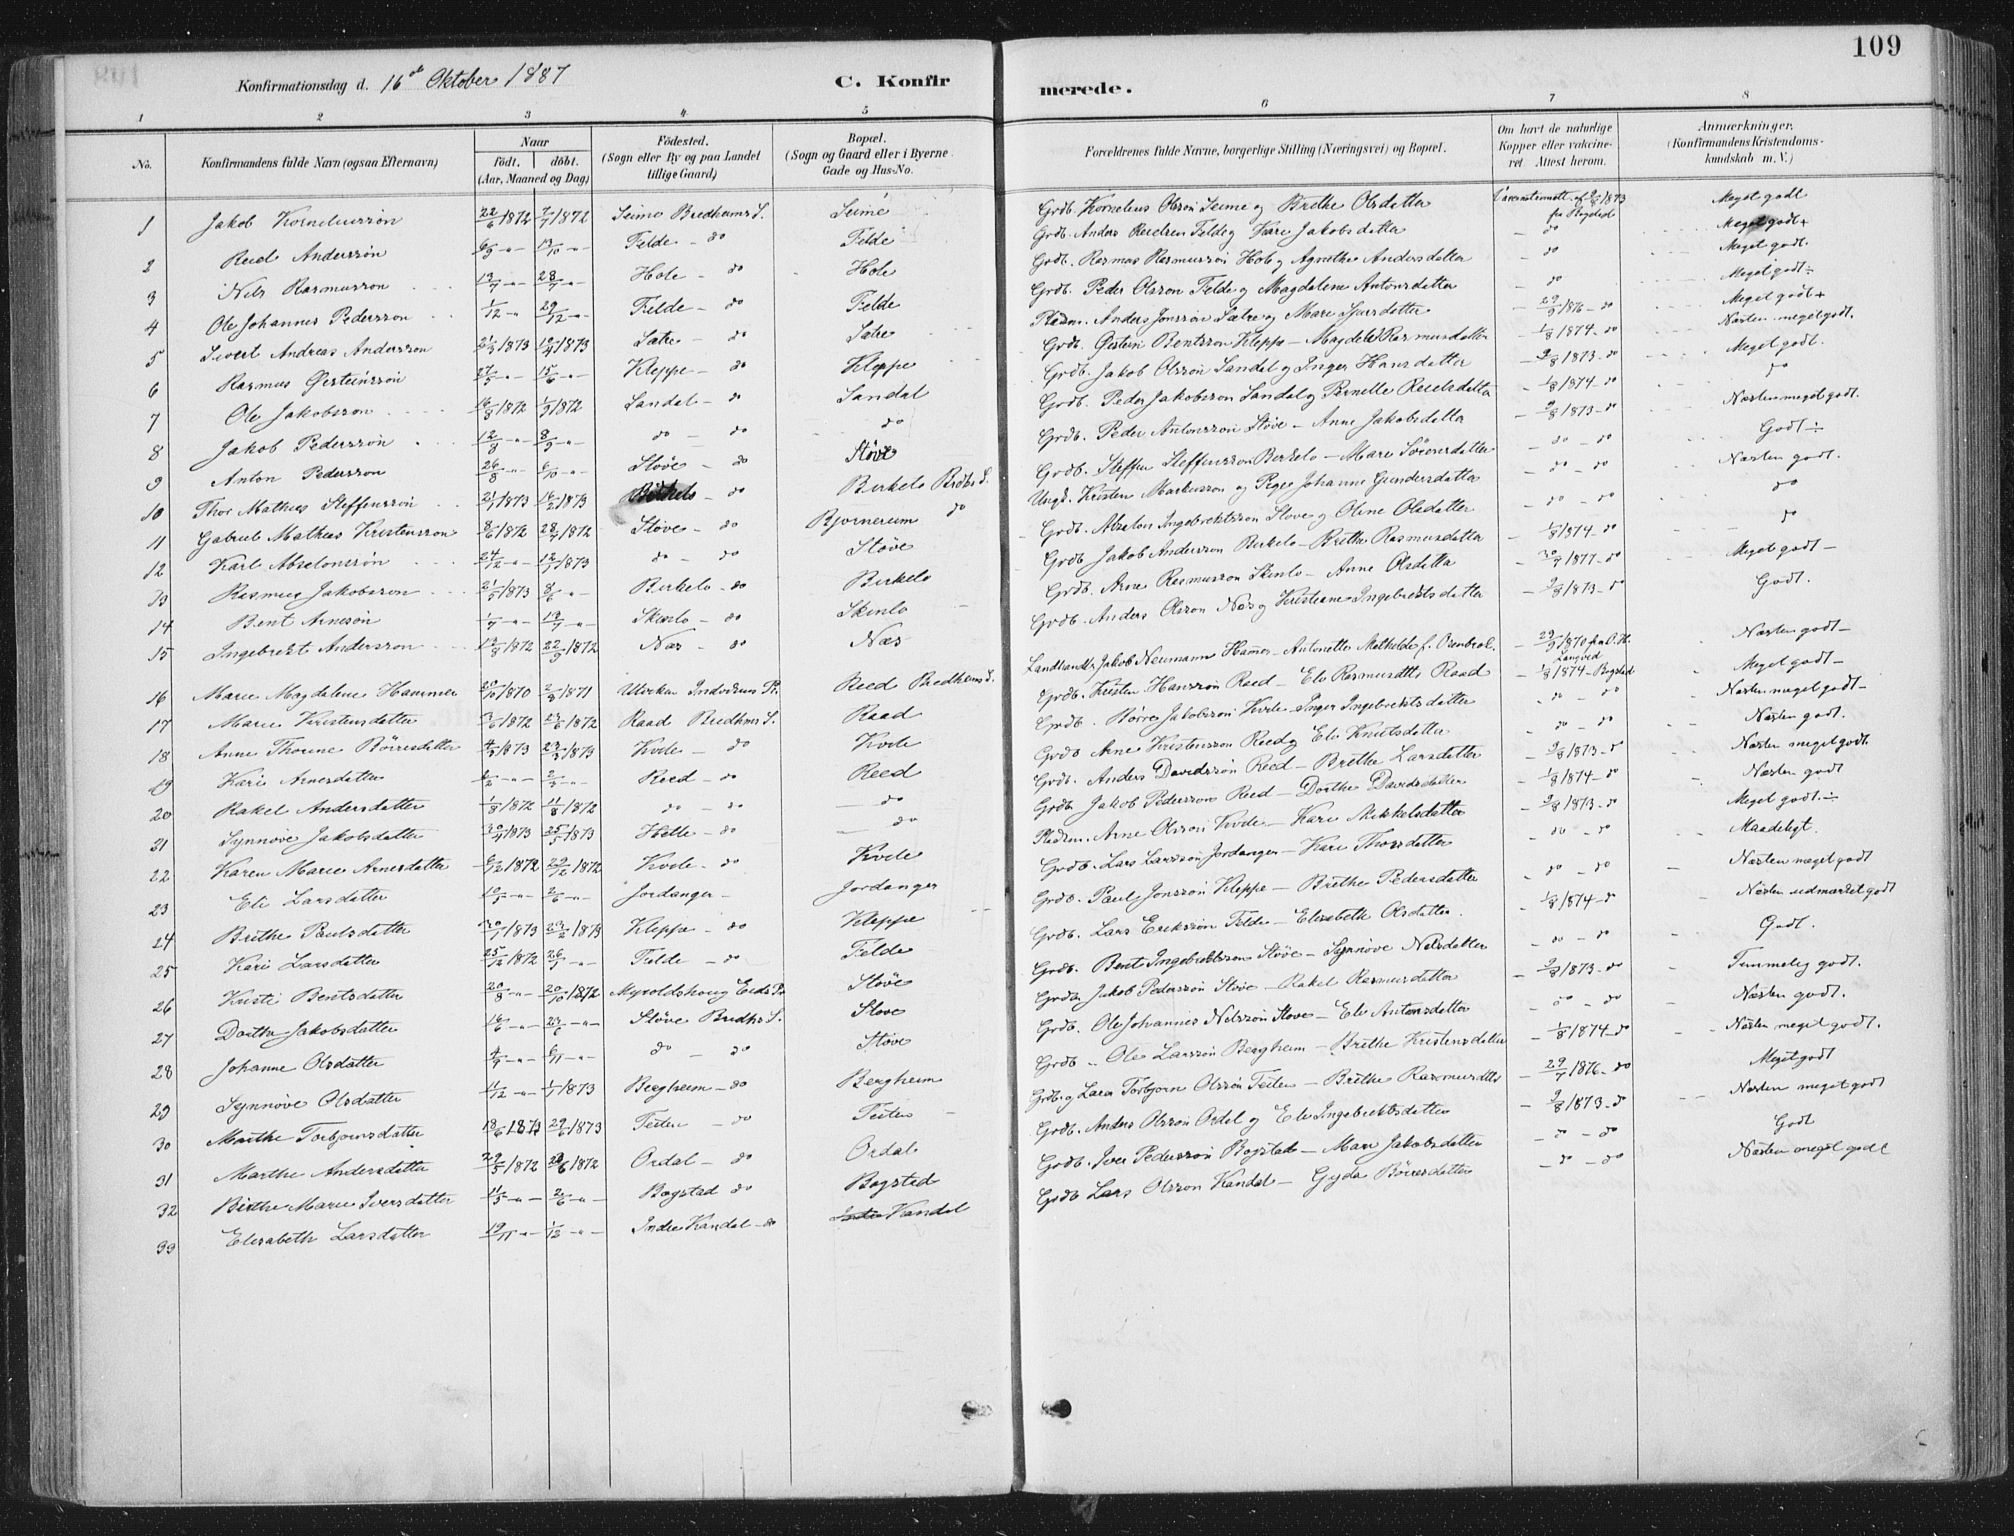 109
Konfirmationsdag d. 16de Oktober 1887
C. Konfirmerede.
1 2 3 4 5 6 7 8
No. Konfirmandens fulde Navn (ogsaa Efternavn) Naar födt. döbt. (Aar, Maaned og Dag) Födested. (Sogn eller By og paa Landet tillige Gaard) Bopæl. (Sogn og Gaard eller i Byerne Gade og Hus-No. Forældrenes fulde Navne, borgerlige Stilling (Næringsvei) og Bopæl. Om havt de naturlige Kopper eller vakcineret. Attest herom. Anmærkninger. (Konfirmandens Kristendomskundskab m. V.)
1 Jakob Korneliussön 22/6 1872 7/7 1872 Seime Bredheims S. Seime Grdb. Kornelius Olsson Seime og Brithe Olsdatter Meget godt
2 Reid Anderssön Felde - do Felde Grdb. Anders Reidsen Felde og Kari Jakobsdatter - do Meget godt+
3 Nils Rasmusson Hole - do Hole Grdb. Rasmus Rasmussön Hole og Agnethe Andersdatter - do Meget godt.
4 Ole Johannes Pedersson 1/12 -"- 29/12 -"- Felde - do Felde Grdb. Peder Olsson Felde og Magdalene Antonsdatter - do Meget godt÷
5 Sivert Andreas Andersson 21/3 1873 12/4 1873 Sætre - do Sætre Pladsm. Anders Jonssön Sætre og Mari Sjursdatter - 29/9 1876 - do Meget godt+
6 Rasmus Gesteinssön 27/5 -"- 15/6 -"- Kleppe - do Kleppe Grdb. Gestein Bentsson Kleppe - Magdeli Rasmusdatter - 1/8 1874 - do Næsten meget godt.
7 Ole Jakobsson 16/8 1872 1/9 1872 Sandal - do Sandal Grdb. Jakob Olsson Sandal og Inger Hansdatter - 2/8 1873 - do Meget godt.
8 Jakob Pederssön 12/8 -"- 8/9 -"- do - do do Grdb. Peder Jakobsson Sandal og Pernille Reidsdatter - 1/8 1874 - do do
9 Anton Pedersson 26/8 -"- 6/10 -"- Støve - do Støve Grdb. Peder Antonsson Støve - Anne Jakobsdatter - 2/8 1873 - do Næsten meget godt.
10 Thor Mathias Steffenssön 21/1 1873 16/2 1873 Birkelo - do Birkelo Brdhs S. Grdb. Steffen Steffensson Birkelo - Mari Sörensdatter - do - do Godt÷
11 Gabriel Mathias Kristensson 8/6 1872 28/7 1872 Støve - do Bjornerum do Ungk. Kristen Markusson og Pige Johanne Gundersdatter - do - do Næsten godt.
12 Karl Absalonssön 24/12 -"- 12/1 1873 do - do Støve Grdb. Absalon Ingebrektsson Støve og Oline Olsdatter - do - do do
13 Rasmus Jakobsson 21/5 1873 8/6 -"- Birkelo - do Birkelo Grdb. Jakob Andersson Birkelo - Brithe Rasmusdatter - 1/8 1874 - do do
14 Bent Arnesön Skinlo - do Skinlo Grdb. Arne Rasmusson Skinlo - Anne Olsdatter 1877 - do Meget godt -
15 Ingebrekt Andersson 13/8 1872 22/9 1872 Næs - do Næs Grdb. Anders Olsson Næs og Kristiane Ingebrektsdatter - 2/8 1873 - do Godt.
16 Marie Magdalene Hammer 20/10 1870 1871 Indviken Pr. Reed Bredheims S. Landhandlr Jakob Neumann Hammer - Antonette Mathilde f. 1870 Næsten godt -
17 Marie Kristensdatter 1872 23/6 1872 Raad Bredhms S. Raad Grdb. Kristen Hanssön Raad - Eli Rasmusdtr Raad - 1/8 1874 - Bogstad Meget godt -
18 Anne Thorine Börresdatter 4/3 1873 23/3 1873 Kvile - do Kvile Grdb. Börre Jakobssön Kvile - Inger Ingebrektsdatter - do - do Næsten meget godt -
19 Kari Arnesdatter Reed - do Reed Grdb. Arne Kristensson Reed og Eli Knutsdatter do - do Næsten godt.
20 Rakel Andersdatter 1/8 1872 11/8 1872 do - do do Grdb. Anders Davidssön Reed - Brithe Larsdatter - 2/8 1873 - do Næsten meget godt.
21 Synnöve Jakobsdatter 30/4 1873 25/5 1873 Hette - do do Grdb. Jakob Pedersson Reed - Dorthe Davidsdatter - 1/8 1874 - do Næsten godt
22 Karen Marie Arnesdatter 6/12 1872 29/12 1872 Kvile - do Kvile Pladsm. Arne Olsson Kvile - Kari Mikkelsdatter - 2/8 1873 - do Meget godt.÷
23 Eli Larsdatter Jordanger - Jordanger Grdb. Lars Larsson Jordanger - Kari Thorsdatter do - do Maadeligt.
24 Brithe Paulsdatter 30/1 1873 23/2 1873 Kleppe - do Kleppe Grdb. Paul Jonssön Kleppe - Brithe Pedersdatter - do - do Næsten meget godt
25 Kari Larsdatter 25/12 1872 26/1 -"- Felde - do Felde Grdb. Lars Eriksson Felde - Elisabeth Olsdatter. - 1/8 1874 - do Næsten udmærket godt
26 Kristi Bentsdatter 20/8 -"- 20/10 1872 Myroldshoug Eids Pr Støve Grdb. Bent Ingebrektsson Støve - Synnöve Nilsdatter - do - do Godt.
27 Dorthe Jakobsdatter 16/6 -"- 23/6 -"- Støve Bredhs S. Støve Grdbr Jakob Pederssön Støve - Rakel Rasmusdatter - 2/8 1873 - do Temmelig godt.
28 Johanne Olsdatter do - do Støve Grdb. Ole Johannes Nilsson Støve - Eli Antonsdatter - do - do Næsten godt.
29 Synnöve Olsdatter 11/12 -"- 1/1 1873 Bergheim - do Bergheim Grdb. Ole Larssön Bergheim - Brithe Kristensdatter - 1/8 1874 - do Næsten meget godt.
30 Marthe Torbjornsdatter 18/6 1873 29/6 1873 Teiten - do Teiten Grdb. og Lærer Torbjorn Olssön Teiten - Brithe Rasmusdtr - 29/7 1876 - do Meget godt
31 Marthe Andersdatter 29/5 1872 1872 Ordal - do Ordal Grdb. Anders Olsson Ordal og Eli Ingebrektsdatter - 2/8 1873 - do Næsten meget godt
32 Birthe Marie Iversdatter 11/5 -"- 2/6 -"- Bogstad do Bogstad Grdb. Iver Pedersson Bogstad - Mari Jakobsdatter - do - do Godt
33 Elisabeth Larsdatter 19/11 -"- 1/12 -"- Indre Kandal - do Kandal Grdb Lars Olsson Kandal - Gyda Börresdatter - do - do Næsten meget godt